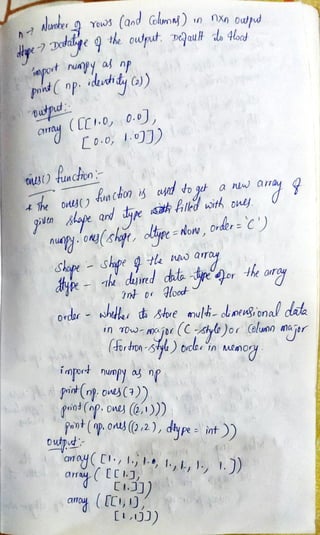 n → Number of rows (and Columns) in nxn output
dtype → Datatype of the output. Default is float
import numpy as np
print( np. identity (2))
output:-
array ( [[1.0, 0.0],
[0.0, 1.0]])
ones() function:-
* The ones() function is used to get a new array of
given shape and type filled with ones.
numpy. ones(shape, dtype = None, order = 'C')
Shape - shape of the new array
dtype - The desired data-type for the array
int or float
order - whether to store multi-dimensional data
in row-major (C-style) or Column major
(fortran-style) order in memory.
import numpy as np
print(np. ones(7))
print(np. ones ((2,1)))
print(np. ones((2,2), dtype = int ))
output:-
array( [1., 1., 1., 1., 1., 1., 1.])
array ( [[1.],
[1.]])
array ( [[1,1],
[1,1]])